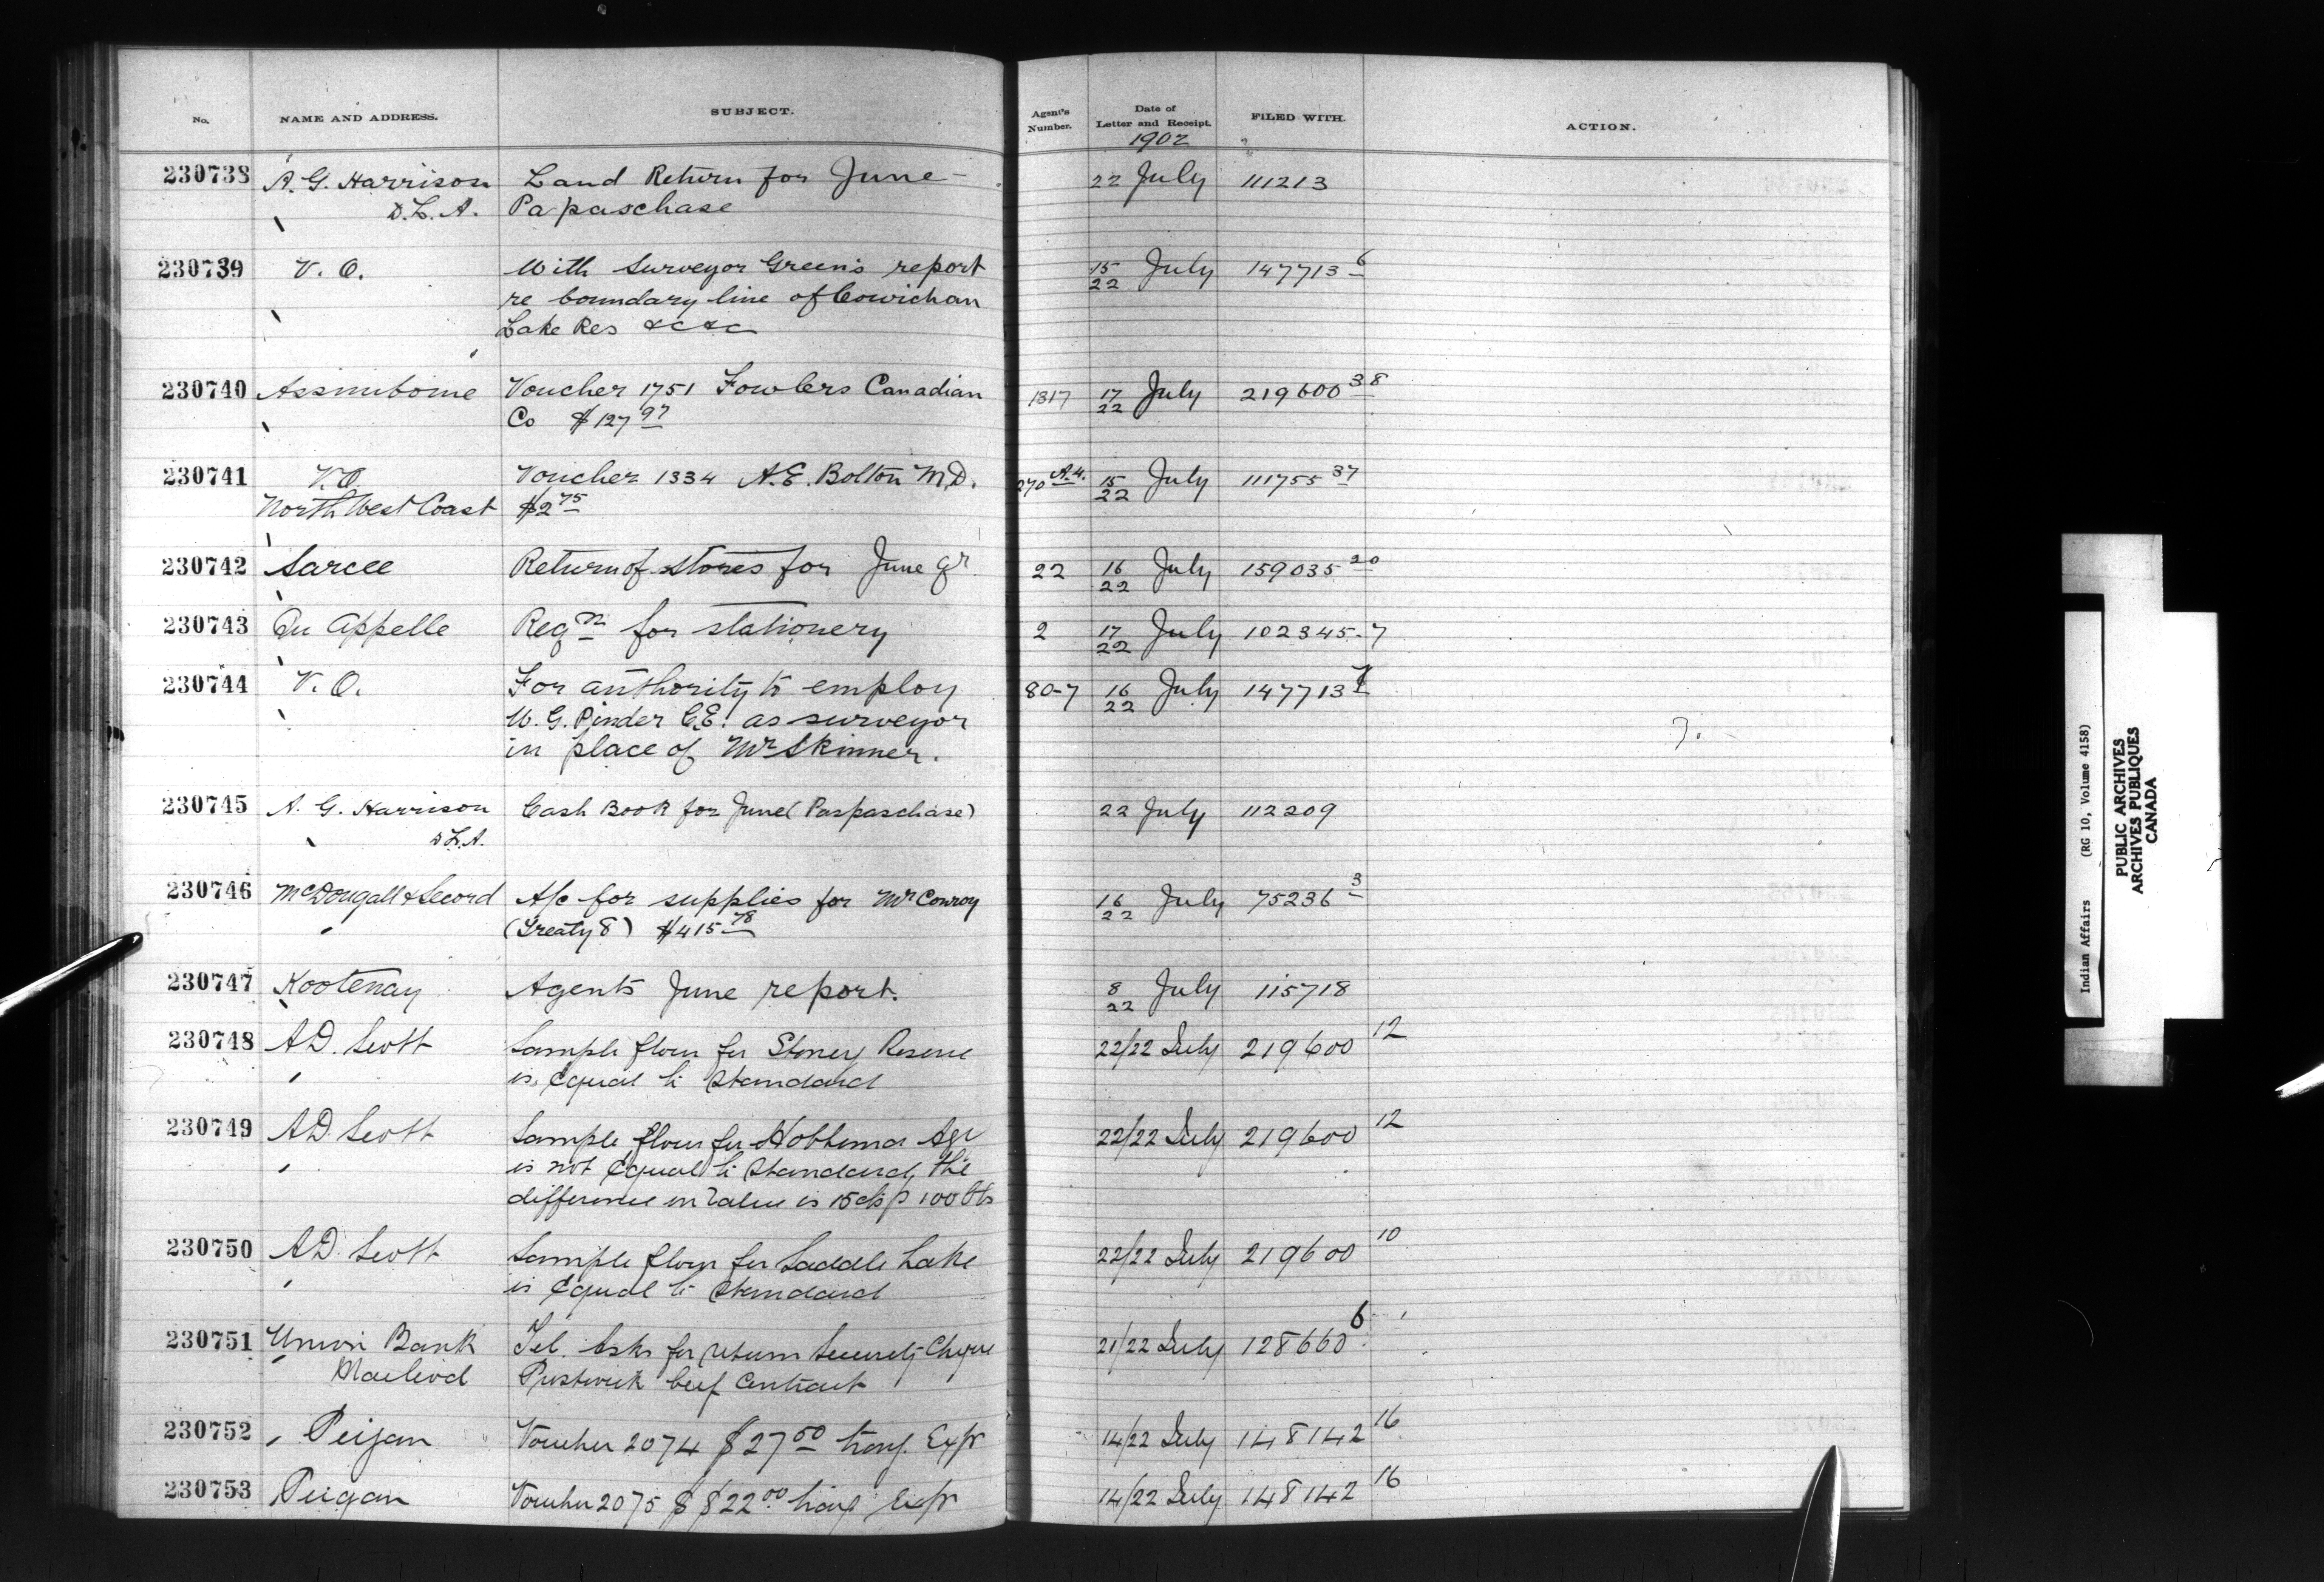 No. NAME AND ADDRESS. SUBJECT. Agent's Number. Date of Letter and Receipt. FILED WITH. ACTION.
1902
230738 A. G. Harrison Land Return for June 22 July 111213
D.L.A. Papaschase
230739 V. O. With Surveyor Green's report 15/22 July 147713 6
re boundary line of Cowichan
Lake Res &c &c
230740 Assiniboine Voucher 1751 Fowlers Canadian 1817 17/22 July 219600 38
Co $127 97
230741 V.O. Voucher 1334 A.E. Bolton M.D. 270 A.4. 15/22 July 111755 37
North West Coast $2 75
230742 Sarcee Return of Stores for June qr 22 16/22 July 159035 20
230743 Qu Appelle Reqn for stationery 2 17/22 July 102345-7
230744 V. O. For authority to employ 80-7 16/22 July 147713 7
W. G. Pinder C.E. as surveyor
in place of Mr Skinner.
230745 A. G. Harrison Cash Book for June (Paspaschase) 22 July 112209
D.L.A.
230746 McDougall & Secord A/c for supplies for Mr Conroy 16/22 July 75236 3
(Treaty 8) $415 78
230747 Kootenay Agents June report. 8/22 July 115718
230748 A.D. Scott Sample flour for Stoney Reserve 22/22 July 219600 12
is equal to Standard
230749 A.D. Scott Sample flour for Hobbema Agy 22/22 July 219600 12
is not equal to Standard, the
difference in value is 15 cts p 100 lbs
230750 A.D. Scott Sample flour for Saddle Lake 22/22 July 219600 10
is equal to Standard
230751 Union Bank Tel. Asks for return Security Cheque 21/22 July 128660 6
Macleod beef Contract
230752 Peigan Voucher 2074 $27 50 Exps 14/22 July 148142 16
230753 Peigan Voucher 2075 $ $22 00 Exps 14/22 July 148142 16
Indian Affairs (RG 10, Volume 4158)
PUBLIC ARCHIVES
ARCHIVES PUBLIQUES
CANADA